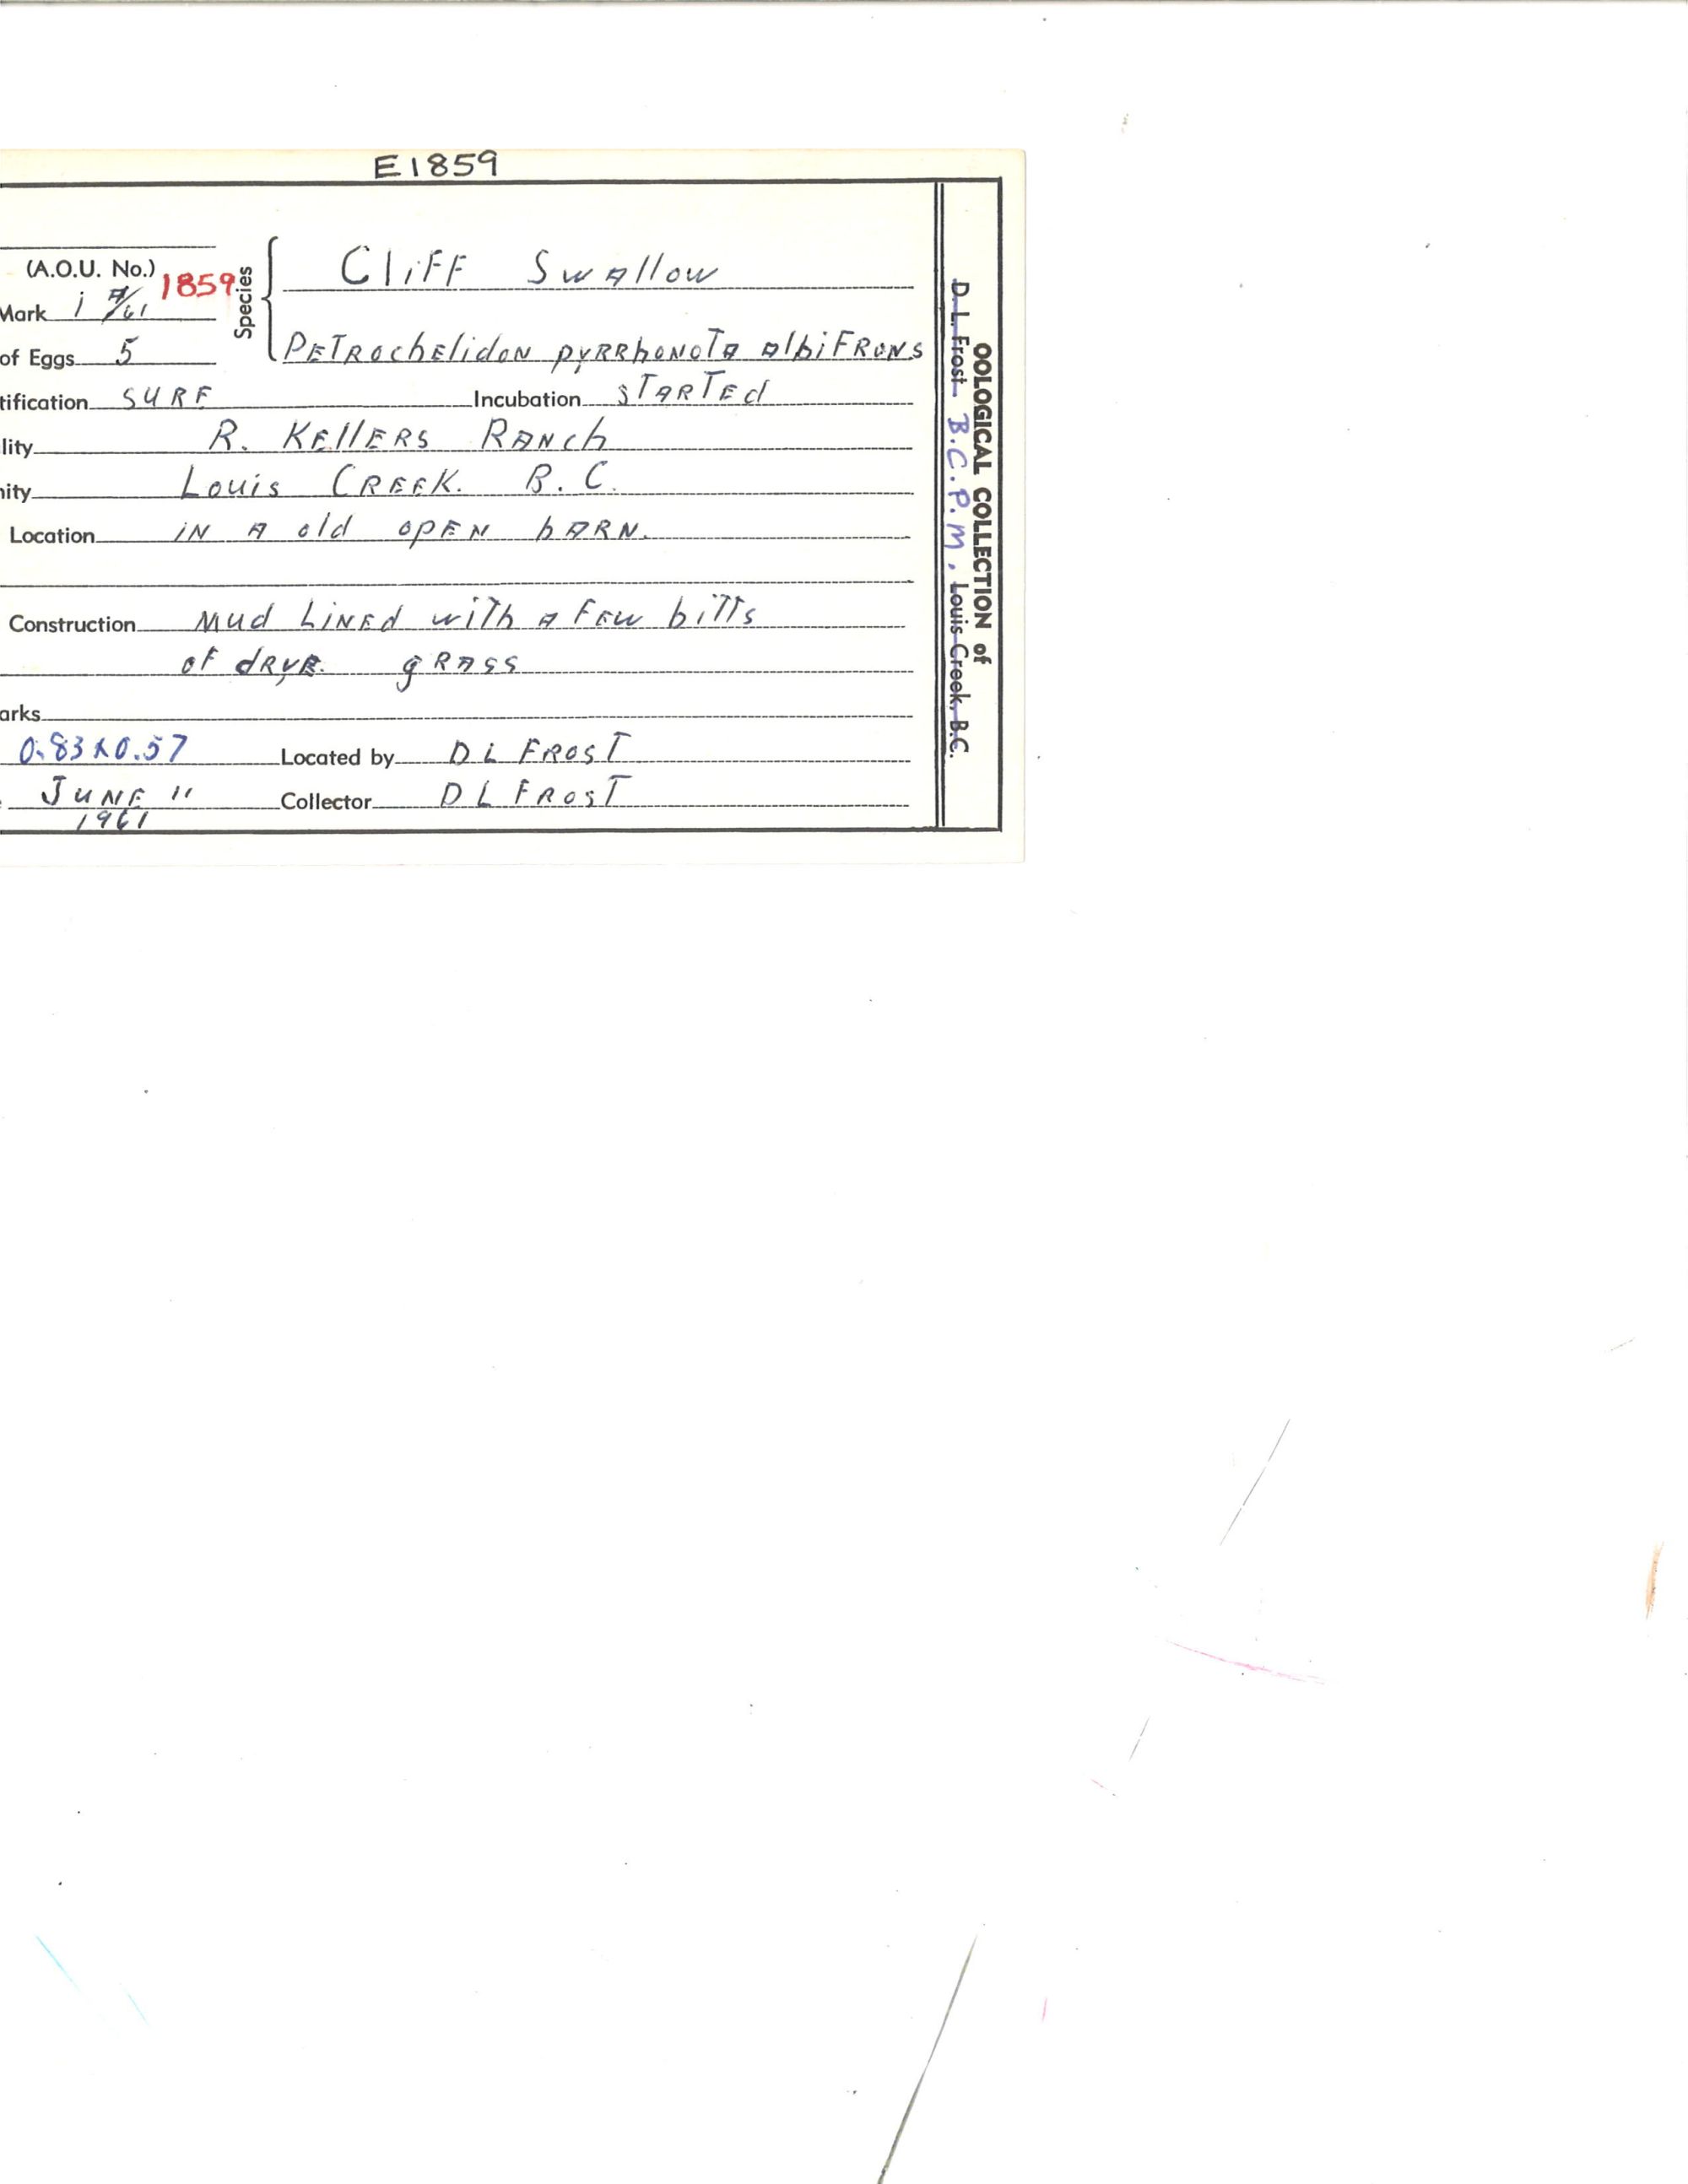 E1859
(A.O.U. No.) 1859
Mark
Species
Cliff Swallow
of Eggs 5
Petrochelidon pyrrhonota albifrons
tification SURE Incubation STARTEd
lity R. KEllERS RANch
ity Louis CREEK. B.C.
Location iN A old opEN bARN.
Construction Mud LiNEd with A FEW biTTs
of dRyE. gRASS
arks
0.83 x 0.57 Located by D L FROST
JUNE 11 Collector D L FROST
1961
OOLOGICAL COLLECTION of
D. L. Frost B.C.P.M. Louis Creek, B.C.